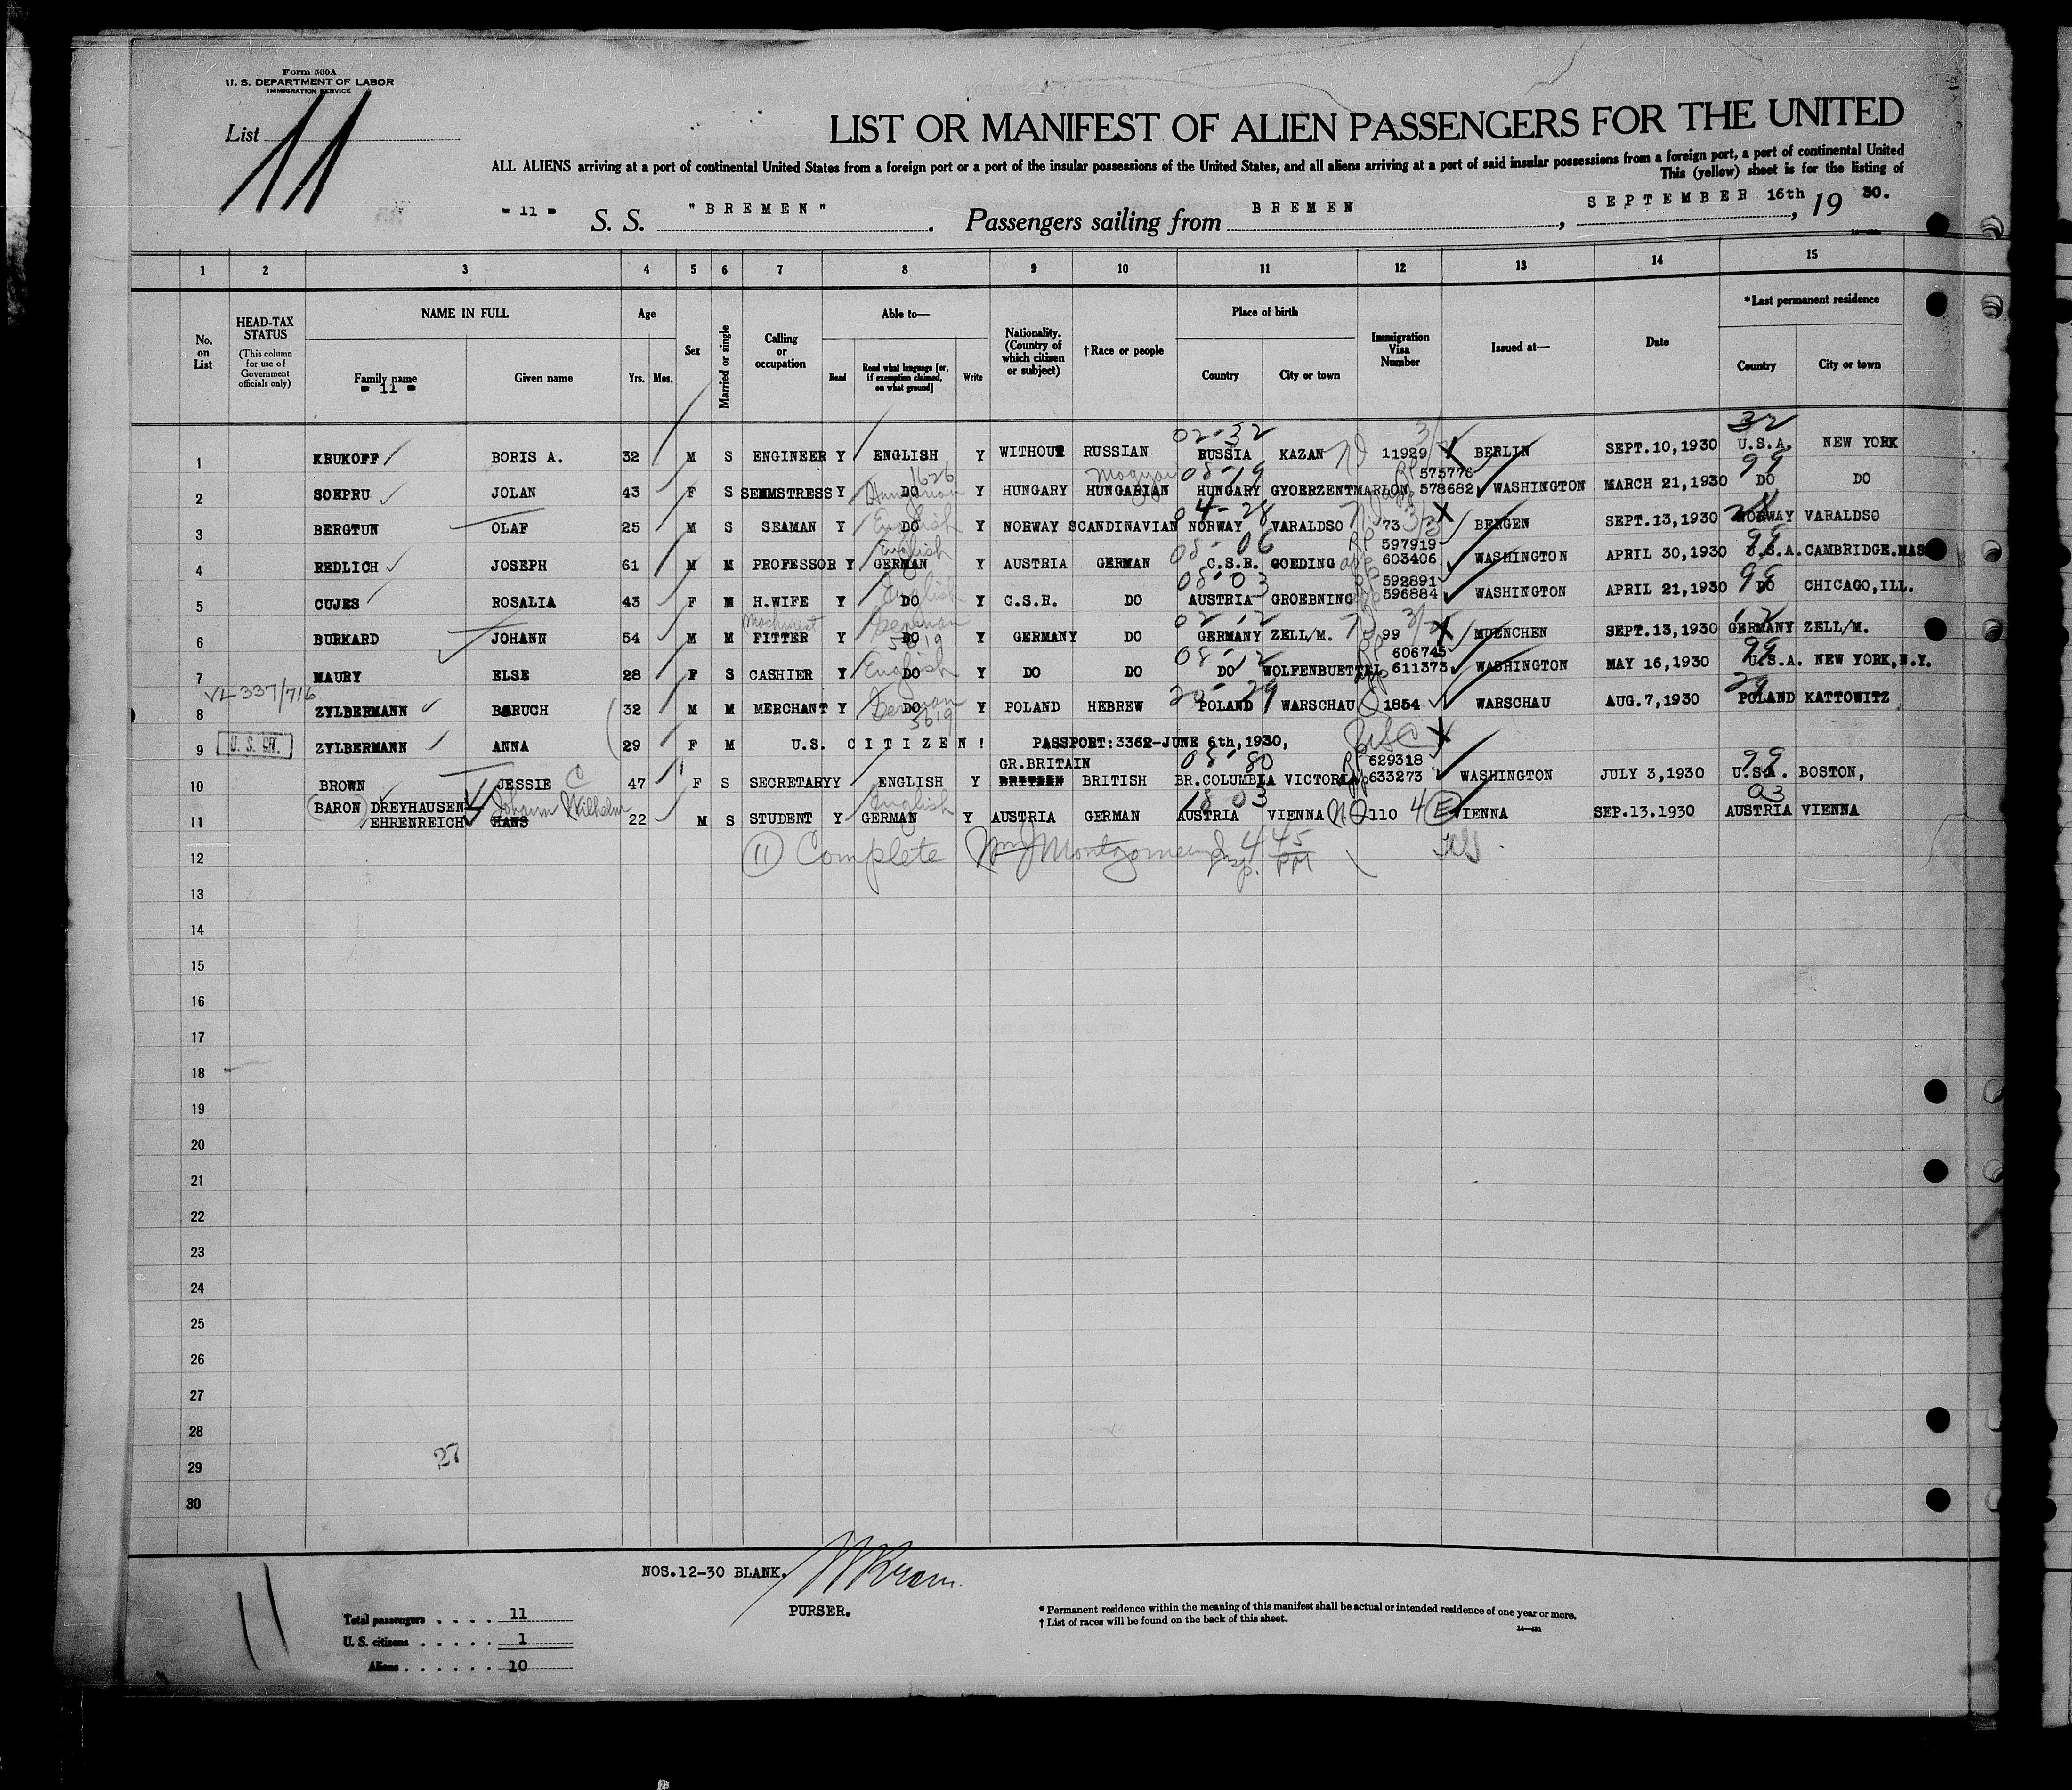 Form 500A
U. S. DEPARTMENT OF LABOR
IMMIGRATION SERVICE
List 11
LIST OR MANIFEST OF ALIEN PASSENGERS FOR THE UNITED
ALL ALIENS arriving at a port of continental United States from a foreign port or a port of the insular possessions of the United States, and all aliens arriving at a port of said insular possessions from a foreign port, a port of continental United
This (yellow) sheet is for the listing of
- 11 - S. S. "BREMEN". Passengers sailing from BREMEN, SEPTEMBER 16th, 19 30.
1 2 3 4 5 6 7 8 9 10 11 12 13 14 15
No. on List
HEAD-TAX STATUS
(This column for use of Government officials only)
NAME IN FULL
Family name
- 11 -
Given name
Age
Yrs. Mos.
Sex
Married or single
Calling or occupation
Able to—
Read
Read what language [or, if exemption claimed, on what ground]
Write
Nationality. (Country of which citizen or subject)
†Race or people
Place of birth
Country
City or town
Immigration Visa Number
Issued at—
Date
*Last permanent residence
Country
City or town
02-32 3/ 32
1 KRUKOFF BORIS A. 32 M S ENGINEER Y ENGLISH Y WITHOUT RUSSIAN RUSSIA KAZAN 11929 BERLIN SEPT.10,1930 U.S.A. NEW YORK
1626 Magyar 08-19 RP 575776 99
2 SOEPRU JOLAN 43 F S SEMMSTRESS Y DO Hungarian Y HUNGARY HUNGARIAN HUNGARY GYOERZENTMARLON 578682 WASHINGTON MARCH 21,1930 DO DO
04-28
3 BERGTUN OLAF 25 M S SEAMAN Y DO English Y NORWAY SCANDINAVIAN NORWAY VARALDSO 73 3/3 BERGEN SEPT.13,1930 NORWAY VARALDSO
English 08-06 RP 597919 99
4 REDLICH JOSEPH 61 M M PROFESSOR Y GERMAN Y AUSTRIA GERMAN C.S.R. GOEDING app 603406 WASHINGTON APRIL 30,1930 U.S.A. CAMBRIDGE.MAS
English 08-03 RP 592891 99
5 CUJES ROSALIA 43 F M H.WIFE Y DO Y C.S.R. DO AUSTRIA GROEBNING app 596884 WASHINGTON APRIL 21,1930 DO CHICAGO,ILL.
Machinist German 02-12 12
6 BURKARD JOHANN 54 M M FITTER Y DO 5619 Y GERMANY DO GERMANY ZELL/M. 99 MUENCHEN SEPT.13,1930 GERMANY ZELL/M.
08-12 RP 606745 99
7 MAURY ELSE 28 F S CASHIER Y DO English Y DO DO DO WOLFENBUETTEL app 611373 WASHINGTON MAY 16,1930 U.S.A. NEW YORK,N.Y.
VL 337/716 German 20-29 29
8 ZYLBERMANN BORUCH 32 M M MERCHANT Y DO 5619 Y POLAND HEBREW POLAND WARSCHAU Q 1854 WARSCHAU AUG.7,1930 POLAND KATTOWITZ
9 U.S. CIT. ZYLBERMANN ANNA 29 F M U.S. CITIZEN! PASSPORT:3362-JUNE 6th,1930, USC
GR.BRITAIN 08-80 RP 629318 99
10 BROWN JESSIE C 47 F S SECRETARY Y ENGLISH Y BRITISH BR.COLUMBIA VICTORIA app 633273 WASHINGTON JULY 3,1930 U.S.A. BOSTON,
(BARON) DREYHAUSEN Johann Wilhelm English 18 03 03
11 EHRENREICH HANS 22 M S STUDENT Y GERMAN Y AUSTRIA GERMAN AUSTRIA VIENNA NQ 110 4 (E) VIENNA SEP.13.1930 AUSTRIA VIENNA
12 (11) Complete Wm J Montgomery Insp. 4 45 PM
13
14
15
16
17
18
19
20
21
22
23
24
25
26
27
28
29 27
30
NOS.12-30 BLANK.
PURSER.
11
Total passengers . . . . 11
U. S. citizens . . . . . 1
Aliens . . . . . . 10
* Permanent residence within the meaning of this manifest shall be actual or intended residence of one year or more.
† List of races will be found on the back of this sheet.